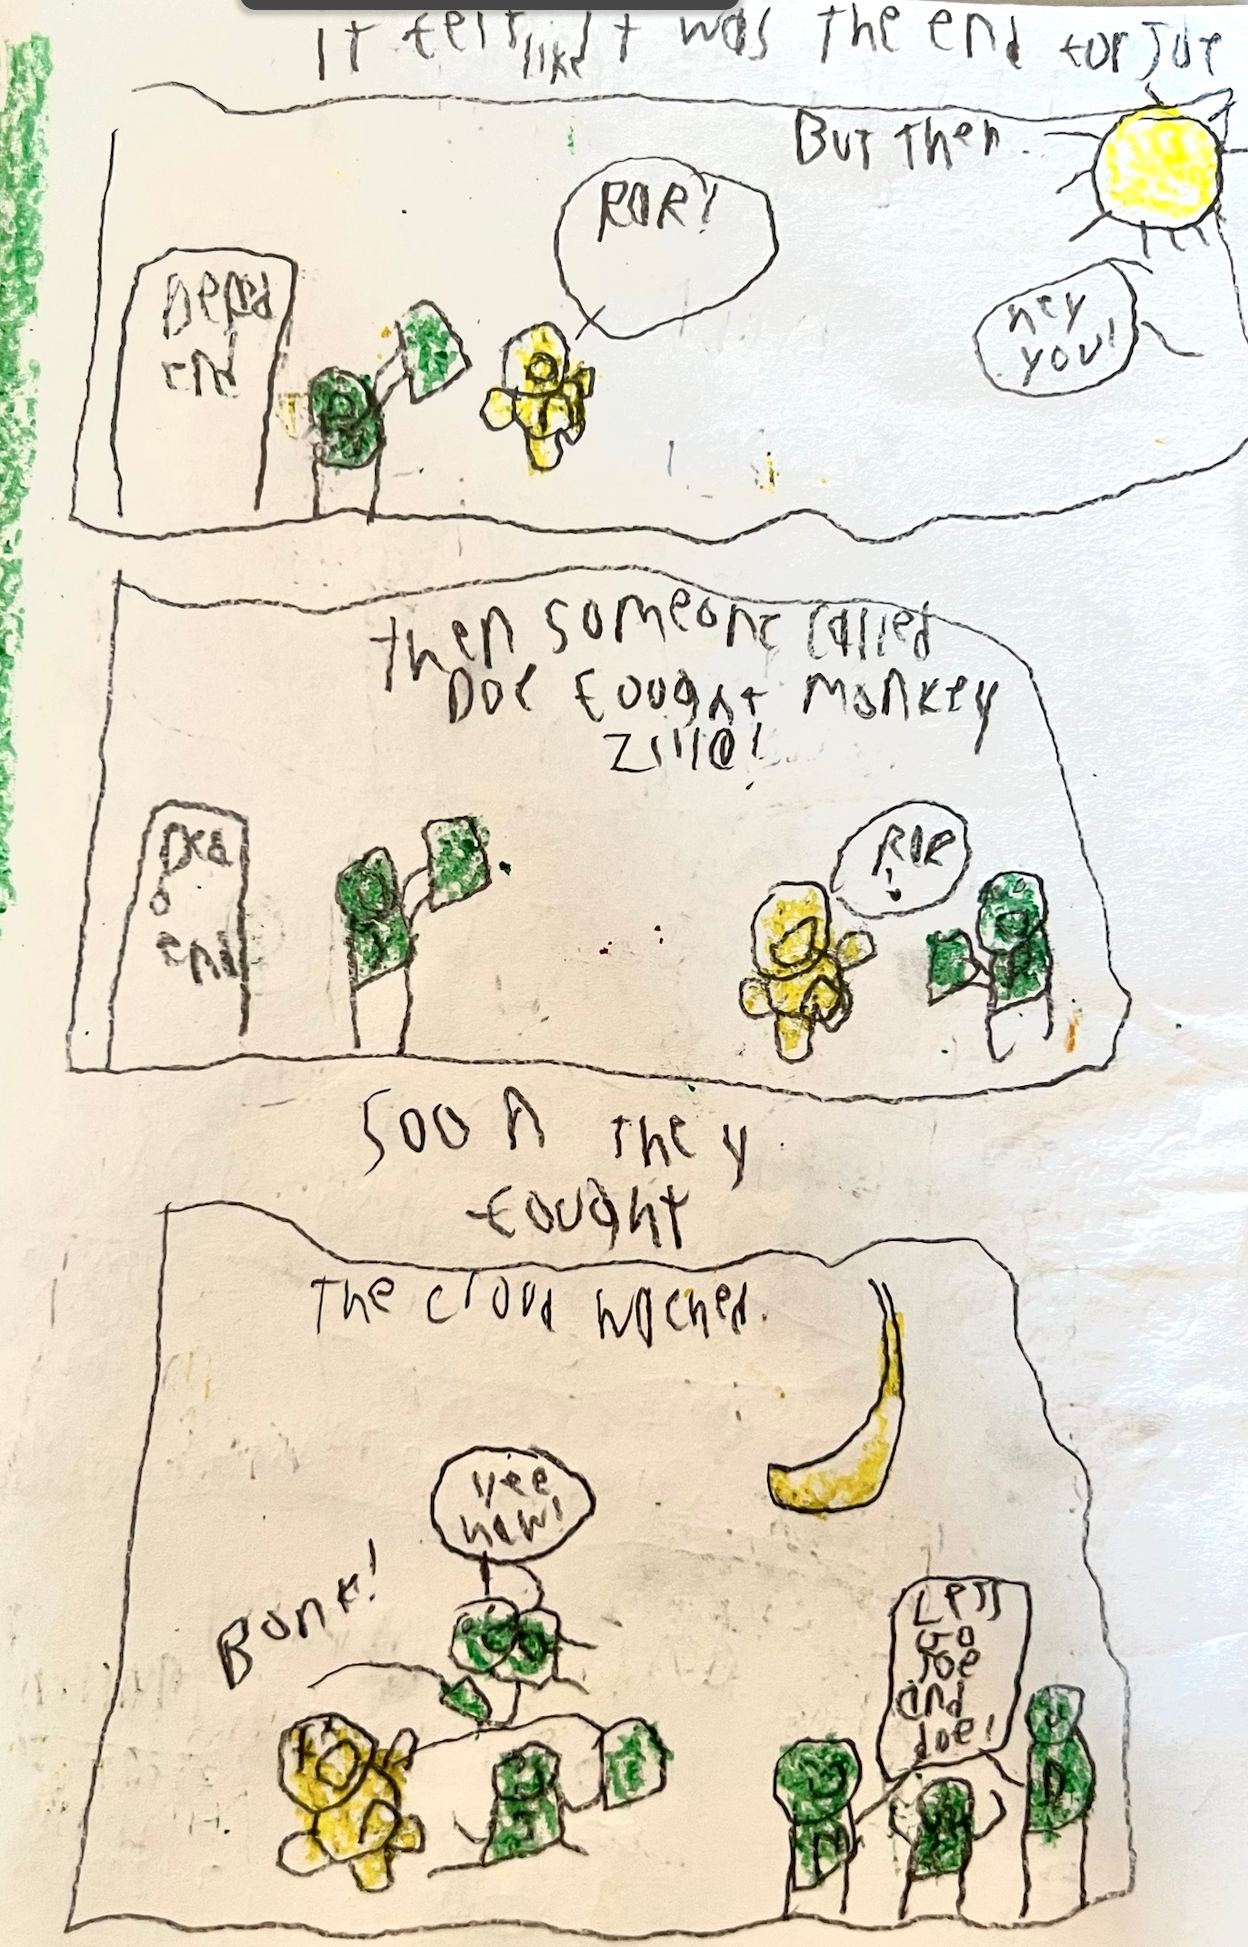 It felt like it was the end for Joe
But then
ROR!
hey
you!
Dead
end
then someone called
Doe fought monkey
zilla!
ROR
!
Dea
d
end
Soon they
fought
the cloud wached.
yee
haw!
Bonk!
Less
Go
Joe
and
doe!